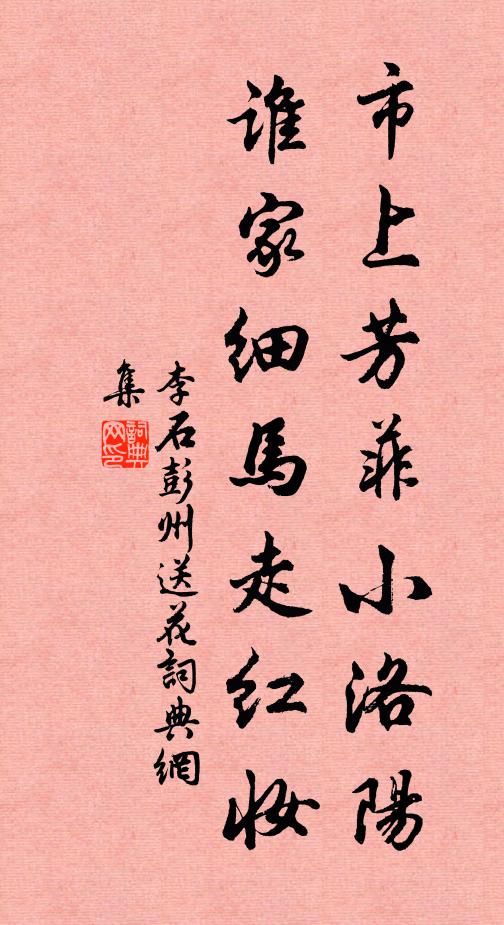 市上芳菲小洛陽
谁家细馬走红妝
李石彭州送花詞典網
集
詞典网印